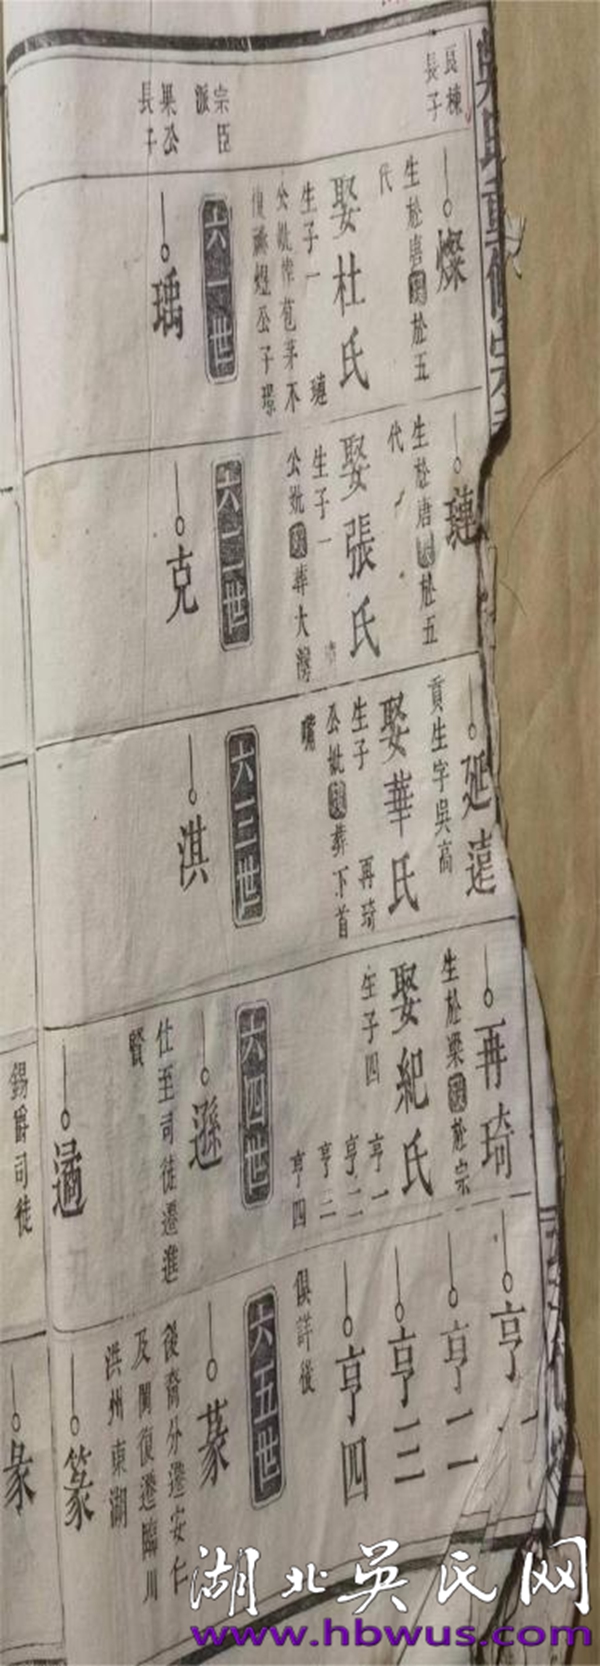 良棟
長子
燦
生於唐歿於五
代
娶杜氏
生子一
璉
公妣俱葬茅不
復歸煜公子璟
宗臣
派
果公
長子
六一世
瑀
璉
生於唐歿於五
代
娶張氏
生子一
公妣歿葬大灣
六二世
克
延遠
貢生字吳高
娶華氏
生子
再琦
公妣歿葬下首
嘴
六三世
淇
再琦
生於梁歿於宗
娶紀氏
生子四
亨一
亨二
亨三
亨四
六四世
遜
仕至司徒遷進
賢
遹
錫爵司徒
亨一
亨二
亨三
亨四
俱詳後
六五世
蒃
後裔分遷安仁
及閩復遷臨川
洪州東湖
篆
彖
湖北吴氏网
www.hbwus.com